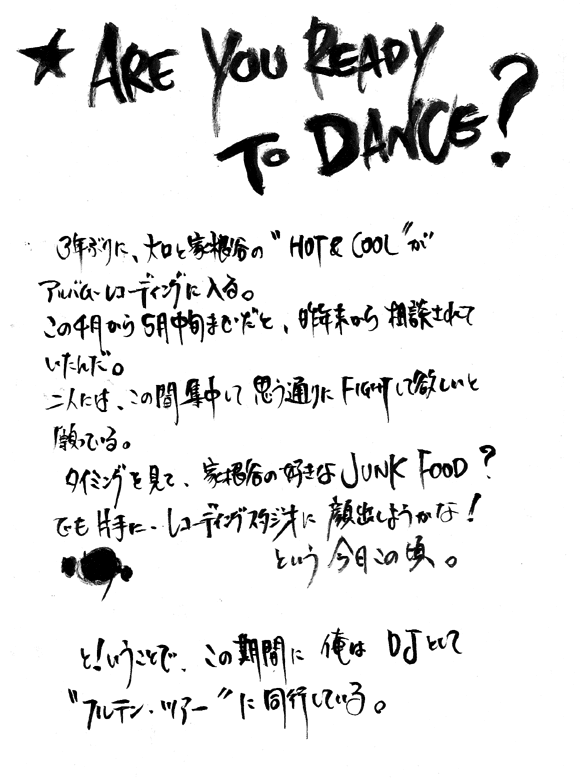 ★ ARE YOU READY
TO DANCE?
3年ぶりに、大口と家根谷の"HOT & COOL"が
アルバム・レコーディングに入る。
この4月から5月中旬までだと、昨年末から相談されて
いたんだ。
二人には、この間集中して思う通りにFIGHTして欲しいと
願っている。
タイミングを見て、家根谷の好きなJUNK FOOD?
でも片手に・レコーディングスタジオに顔出しようかな!
という今日この頃。
と!いうことで、この期間に俺はDJとして
"フルテン・ツアー"に同行している。